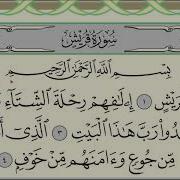 سُورَةُ قُرَيْشٍ
بِسْمِ ٱللَّهِ ٱلرَّحْمَٰنِ ٱلرَّحِيمِ
رَيْشٍ ١ إِۦلَٰفِهِمْ رِحْلَةَ ٱلشِّتَآءِ
دُوا۟ رَبَّ هَٰذَا ٱلْبَيْتِ ٣ ٱلَّذِىٓ أَ
مِّن جُوعٍ وَءَامَنَهُم مِّنْ خَوْفٍ ٤